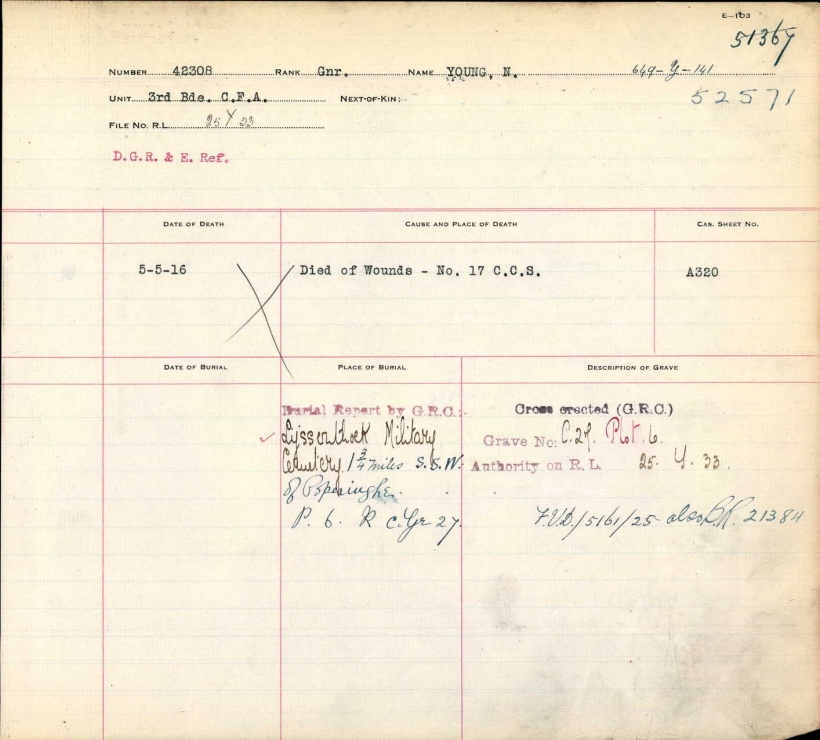 E-103
51367
NUMBER 42308 RANK Gnr. NAME YOUNG, N. 649-Y-141
UNIT 3rd Bde. C.F.A. NEXT-OF-KIN:- 52571
FILE NO. R.L. 25 Y 33
D.G.R. & E. Ref.
DATE OF DEATH CAUSE AND PLACE OF DEATH CAS. SHEET NO.
5-5-16 Died of Wounds - No. 17 C.C.S. A320
DATE OF BURIAL PLACE OF BURIAL DESCRIPTION OF GRAVE
Burial Report by G.R.C:- Cross erected (G.R.C.)
Lijssenthoek Military
Grave No: C.27. Plot. 6.
Cemetery 1 3/4 miles S.S.W.
Authority on R.L. 25. Y. 33.
of Poperinghe.
P. 6. R C. Gr 27.
/5161/25 also 21384